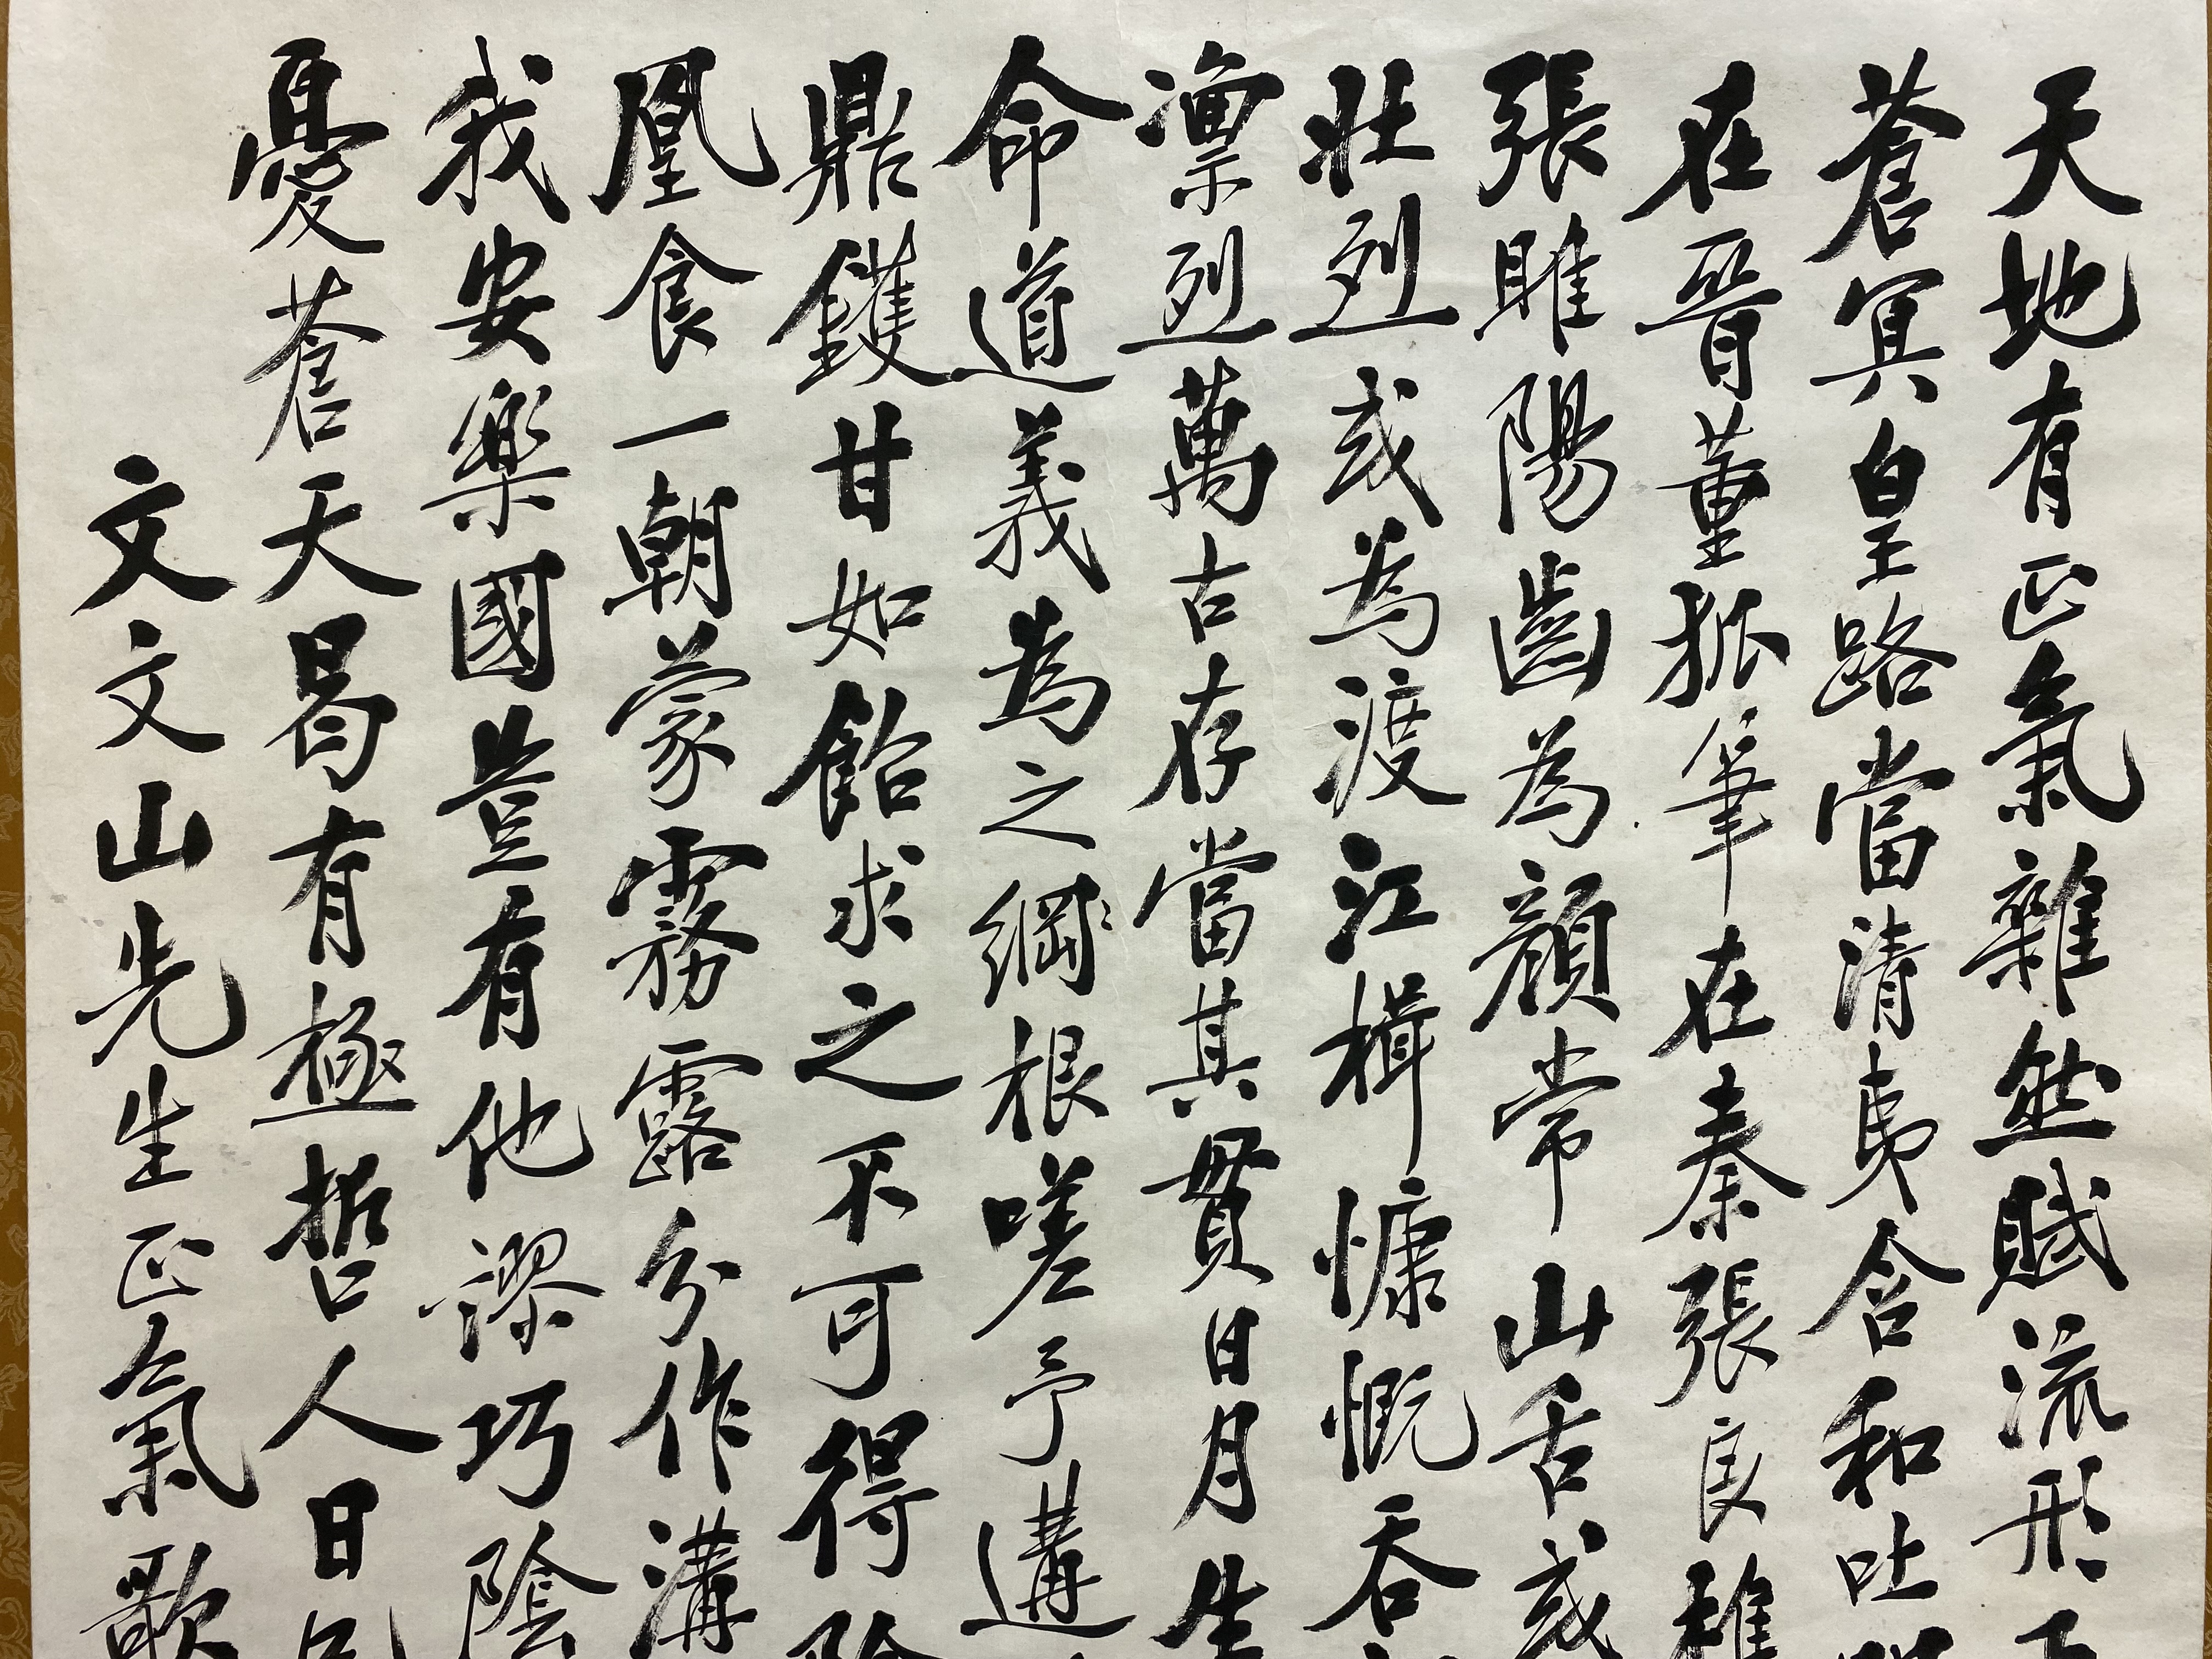 天地有正氣雜然賦流形
蒼冥皇路當清夷含和吐
在晉董狐筆在秦張良椎
張睢陽齒為顏常山舌或
壯烈或為渡江楫慷慨吞
凜烈萬古存當其貫日月生
命道義為之綱根嗟予遘
鼎鑊甘如飴求之不可得陰
凰食一朝蒙霧露分作溝
我安樂國豈有他謬巧陰
憂蒼天曷有極哲人日已
文文山先生正氣歌